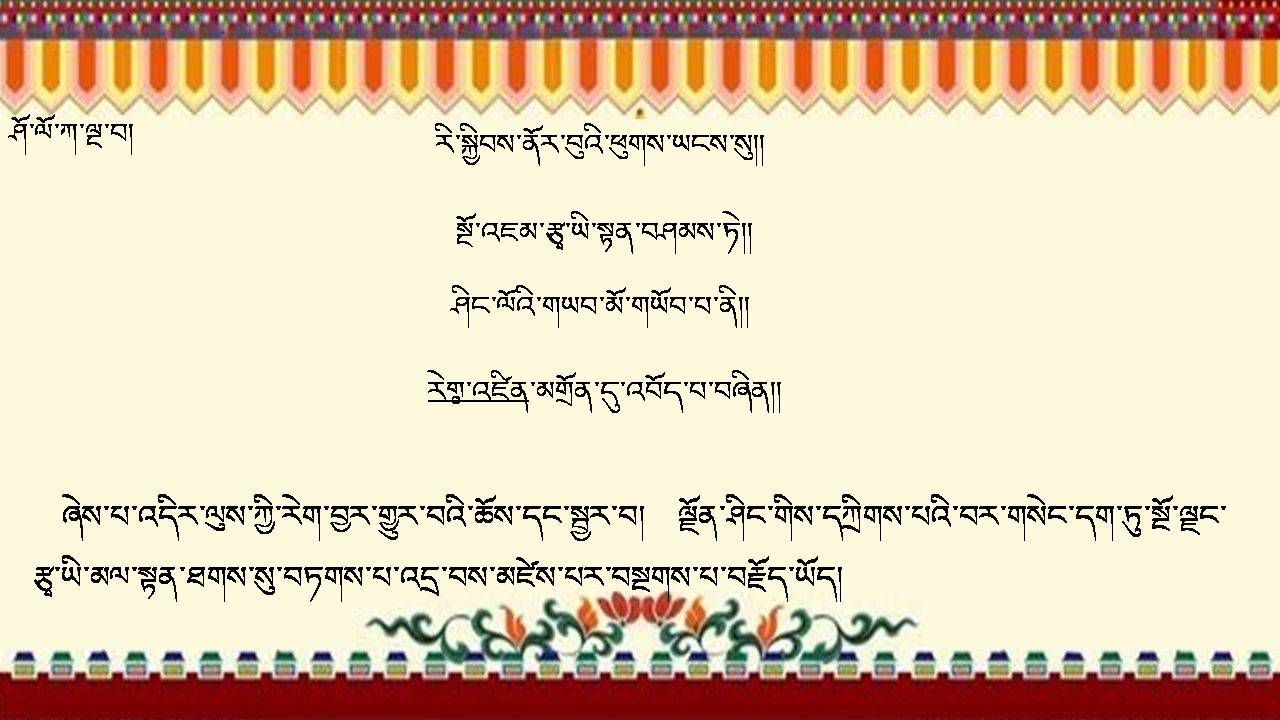 ཤོ་ལོ་ཀ་ལྔ་བ།
རི་སྐྱིབས་ནོར་བུའི་ཕུགས་ཡངས་སུ།།
སྔོ་འཇམ་རྩྭ་ཡི་སྟན་བཤམས་ཏེ།།
ཤིང་ལོའི་གཡབ་མོ་གཡོབ་པ་ནི།།
རེགྭ་འཛིན་མགྲོན་དུ་འབོད་པ་བཞིན།།
ཞེས་པ་འདིར་ལུས་ཀྱི་རེག་བྱར་གྱུར་བའི་ཆོས་དང་སྦྱར་བ། ལྗོན་ཤིང་གིས་དཀྲིགས་པའི་བར་གསེང་དག་ཏུ་སྔོ་ལྗང་
རྩྭ་ཡི་མལ་སྟན་ཐགས་སུ་བཏགས་པ་འདྲ་བས་མཛེས་པར་བསྔགས་པ་བརྗོད་ཡོད།